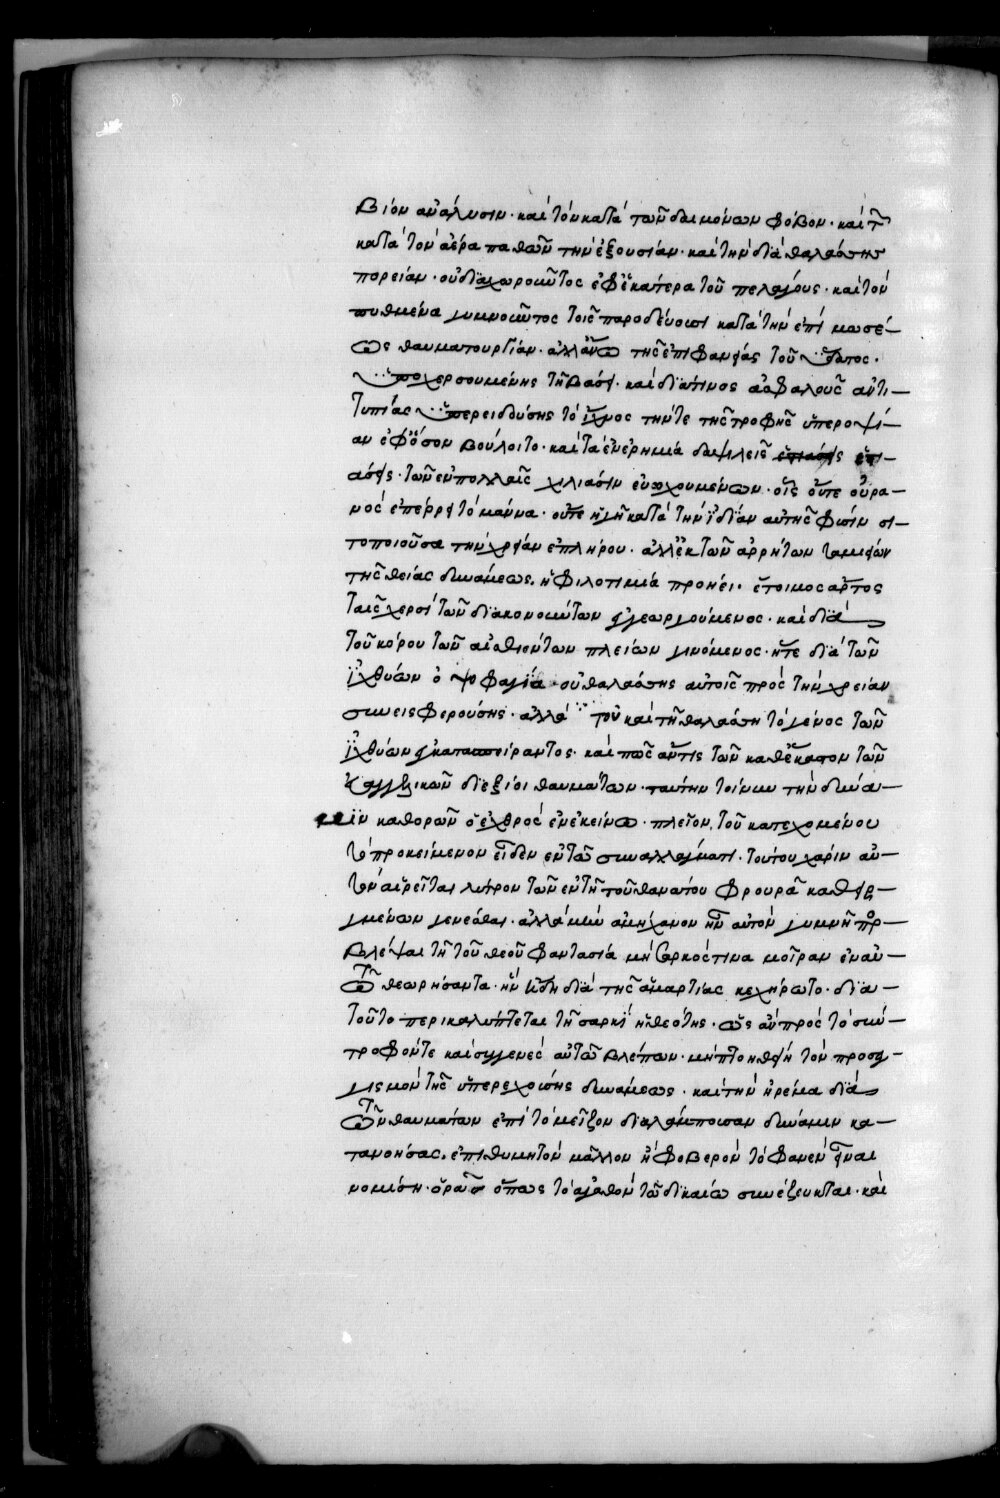 βίον ἀνάλυσιν· καὶ τὸν κατὰ τῶν δαιμόνων φόβον· καὶ τ(ῶν)
κατὰ τὸν ἀέρα παθῶν τὴν ἐξουσίαν· καὶ τὴν διὰ θαλάσσης
πορείαν· οὐ διαχωροῦντος ἐφ' ἑκάτερα τοῦ πελάγους· καὶ τὸν
πυθμένα γυμνοῦντος τοῖς παροδεύουσι κατὰ τὴν ἐπὶ μωσέ–
ως θαυματουργίαν· ἀλλ' ἄνω τῆς ἐπιφανείας τοῦ ὕδατος·
ὑποχερσουμένης τῇ βάσει· καὶ διά τινος ἀσφαλοῦς ἀντι–
τυπίας ὑπερειδούσης τὸ ἴχνος τήν τε τῆς τροφῆς ὑπεροψί–
αν ἐφ' ὅσον βούλοιτο· καὶ τὰ ἐν ἐρημίᾳ δαψιλεῖς ἑστι–
άσεις· τῶν ἐν πολλαῖς χιλιάσιν εὐωχουμένων· οἷς οὔτε οὐρα–
νὸς ἐπέρρει τὸ μάννα· οὔτε ἡ γῆ κατὰ τὴν ἰδίαν αὐτῆς φύσιν σι–
τοποιοῦσα τὴν χρείαν ἐπλήρου· ἀλλ' ἐκ τῶν ἀρρήτων ταμιείων
τῆς θείας δυνάμεως. ἡ φιλοτιμία προῄει· ἕτοιμος ἄρτος
ταῖς χερσὶ τῶν διακονούντων ἐγγεωργούμενος· καὶ διὰ
τοῦ κόρου τῶν ἐσθιόντων πλείων γινόμενος· ἥτε διὰ τῶν
ἰχθύων ὀψοφαγία· οὐ θαλάσσης αὐτοῖς πρὸς τὴν χρείαν
συνεισφερούσης· ἀλλὰ τοῦ καὶ τῇ θαλάσσῃ τὸ γένος τῶν
ἰχθύων ἐγκατασπείραντος· καὶ πῶς ἄν τις τῶν καθ' ἕκαστον τῶν
εὐαγγελικῶν διεξίοι θαυμάτων· ταύτην τοίνυν τὴν δύνα–
μιν καθορῶν ὁ ἐχθρὸς ἐν ἐκείνῳ· πλεῖον τοῦ κατεχομένου
τὸ προκείμενον εἶδεν ἐν τῷ συναλλάγματι· τούτου χάριν αὐ–
τὸν αἱρεῖται λύτρον τῶν ἐν τῇ τοῦ θανάτου φρουρᾷ καθειρ–
γμένων γενέσθαι· ἀλλὰ μὴν ἀμήχανον ἦν αὐτὸν γυμνῇ προ–
βλέψαι τῇ τοῦ θεοῦ φαντασίᾳ μὴ σαρκός τινα μοῖραν ἐν αὐ–
τῷ θεωρήσαντα· ἣν ἤδη διὰ τῆς ἁμαρτίας κεχείρωτο· διὰ
τοῦτο περικαλύπτεται τῇ σαρκὶ ἡ θεότης· ὡς ἂν πρὸς τὸ σύν–
τροφόν τε καὶ συγγενὲς αὐτῷ βλέπων· μὴ πτοηθείη τὸν προσεγ–
γισμὸν τῆς ὑπερεχούσης δυνάμεως· καὶ τὴν ἠρέμα διὰ
τῶν θαυμάτων ἐπὶ τὸ μεῖζον διαλάμπουσαν δύναμιν κα–
τανοήσας. ἐπιθυμητὸν μᾶλλον ἢ φοβερὸν τὸ φανὲν εἶναι
νομίσῃ· ὁρᾷς ὅπως τὸ ἀγαθὸν τῷ δικαίῳ συνέζευκται· καὶ